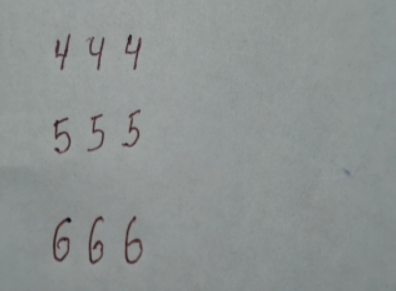 4 4 4
5 5 5
6 6 6